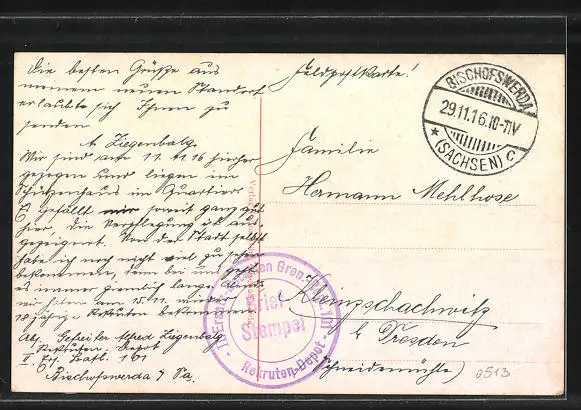 Die besten Grüße aus
meinem neuen Standort
erlaubte sich Ihnen zu
senden
A. Ziegenbalg.
Wir sind am 11.11.16 hierher
gezogen und liegen im
Schützenhaus im Quartier
Es gefällt mir soweit ganz gut
hier, die Verpflegung ist aus-
gezeignet. Von der Stadt selbst
habe ich noch nicht viel zu sehen
bekommen, denn bei uns geht
es immer ziemlich lange
wir haben am 15.11. wieder
18 jährige Rekruten bekommen.
Abs. Gefreiter Alfred Ziegenbalg
Rekruten-Depot
II Ers. Batl. 101
Bischofswerda i/ Sa.
Feldpostkarte!
BISCHOFSWERDA
29.11.16.10-11V
* (SACHSEN) C
Familie
Hermann Mehlhose
Kleinzschachwitz
b. Dresden
(Schneidemühle)
Brief
Stempel
Rekruten-Depot
0513